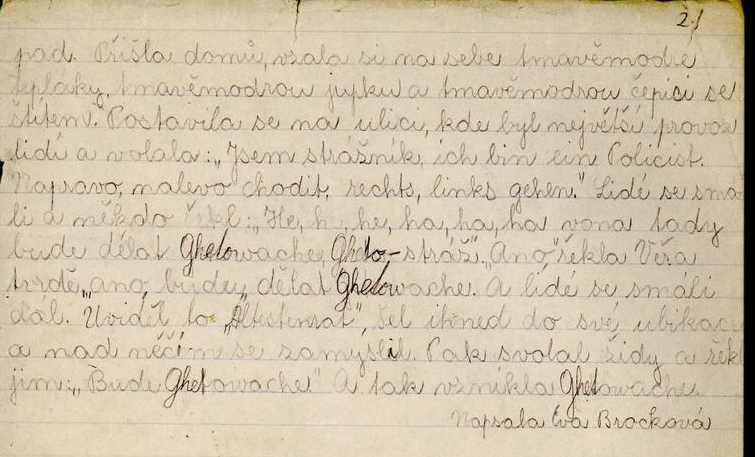 2.)
pad. Přišla domů, vzala si na sebe tmavěmodré
tepláky, tmavěmodrou jupku a tmavěmodrou čepici se
štítem. Postavila se na ulici, kde byl největší provoz
lidí a volala: „Jsem strážník, ich bin ein Policist.
Napravo, nalevo chodit, rechts, links gehen." Lidé se smá-
li a někdo řekl: „He, he, he, ha, ha, ha vona tady
bude dělat Ghetowache, Gheto-stráž". „Ano" řekla Věra
tvrdě, „ano, budu dělat Ghetowache. A lidé se smáli
dál. Uviděl to „Ältestenrat", šel ihned do své ubikace
a nad něčím se zamyslil. Pak svolal židy a řekl
jim: „Bude Ghetowache." A tak vznikla Ghetowache.
Napsala Eva Brocková